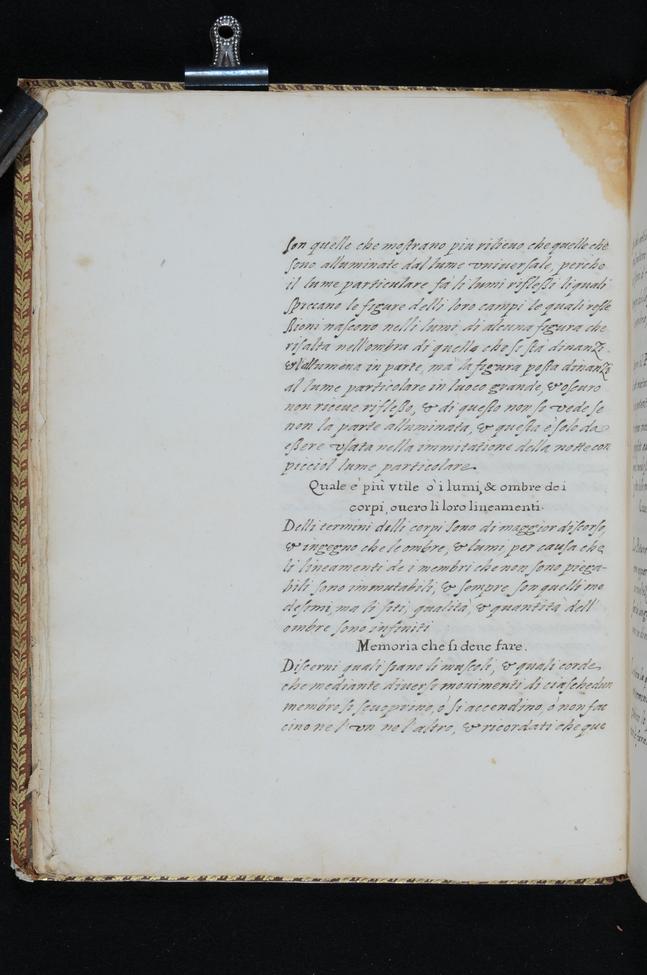 son quelle che mostrano piu rilieuo che quelle che
sono alluminate dal lume vniuersale, perche
il lume particulare fà li lumi riflessi li quali
spiccano le figure delli loro campi le quali refle
ssioni nascono nelli lumi di alcuna figura che
risalta nell'ombra di quella che se stà dinanzi
& l'allumena in parte, ma la figura posta dinanzi
al lume particolare in luoco grande, & oscuro
non riceue riflesso, & di questo non se vede se
non la parte alluminata, & questa è solo da
essere vsata nella immitatione della notte con
picciol lume particolare
Quale è più vtile ò i lumi, & ombre dei
corpi, ouero li loro lineamenti.
Delli termini delli corpi sono di maggior discorso,
& ingegno che le ombre, & lumi, per causa che
li lineamenti de i membri che non sono piega-
bili sono immutabili, & sempre son quelli me
desmi, ma li siti, qualità, & quantità dell'
ombre sono infiniti
Memoria che si deue fare.
Discerni quali siano li muscoli, & quali corde
che mediante diuersi mouimenti di ciaschedun
membro si scuoprino, ò si accendino, ò non fac
cino ne l'vn ne l'altro, & ricordati che que